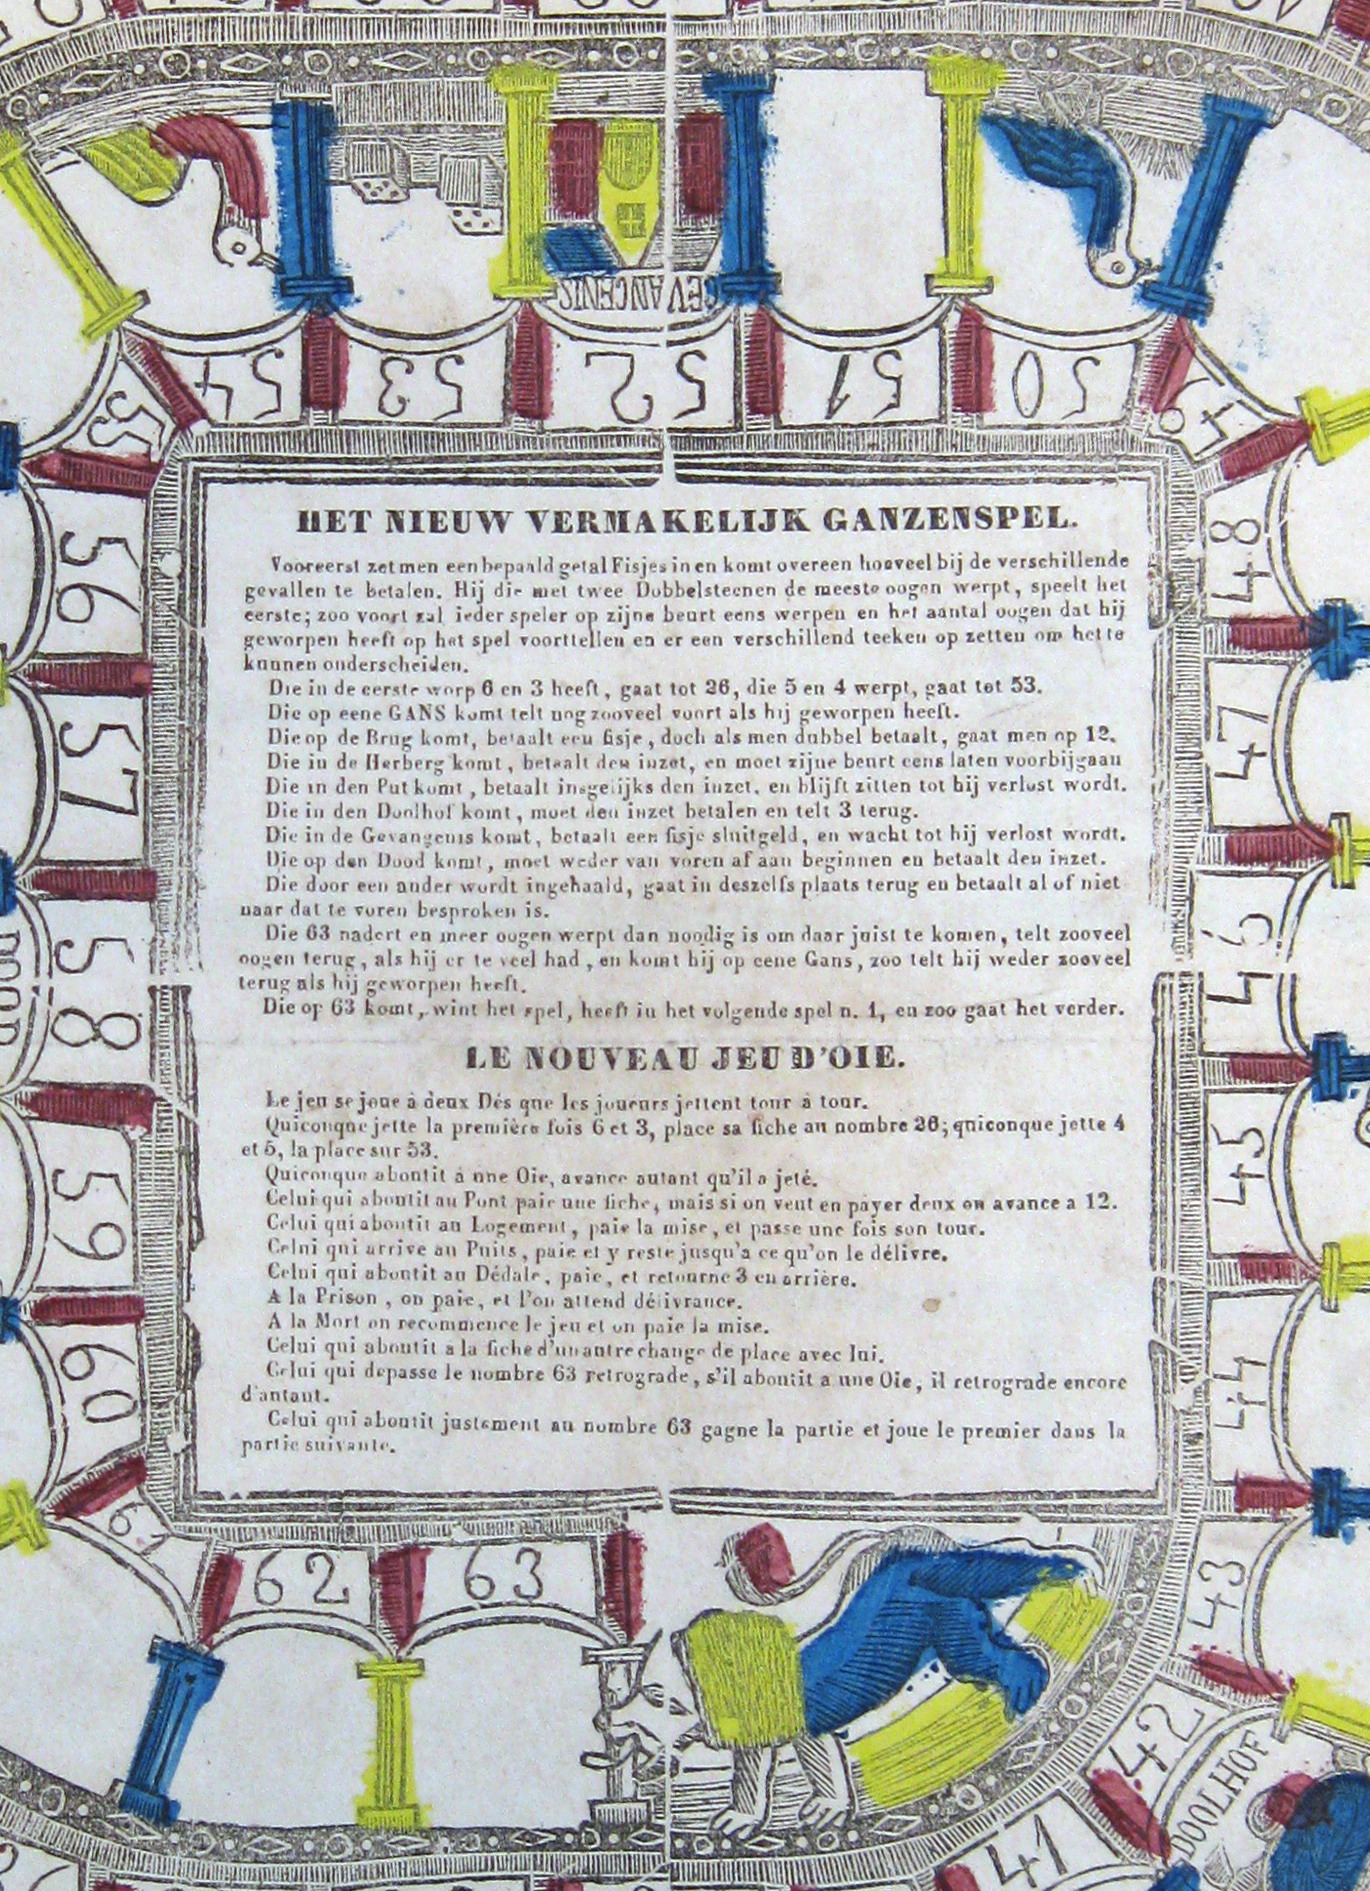 54 53 52 51 50 49
GEVANGENIS
55
56
57
58
DOOD
59
60
61
62 63
48
47
46
45
44
43
42
DOOLHOF
41
HET NIEUW VERMAKELIJK GANZENSPEL.
Vooreerst zet men een bepaald getal Fisjes in en komt overeen hoeveel bij de verschillende
gevallen te betalen. Hij die met twee Dobbelsteenen de meeste oogen werpt, speelt het
eerste; zoo voort zal ieder speler op zijne beurt eens werpen en het aantal oogen dat hij
geworpen heeft op het spel voorttellen en er een verschillend teeken op zetten om het te
kunnen onderscheiden.
Die in de eerste worp 6 en 3 heeft, gaat tot 26, die 5 en 4 werpt, gaat tot 53.
Die op eene GANS komt telt nog zooveel voort als hij geworpen heeft.
Die op de Brug komt, betaalt een fisje, doch als men dubbel betaalt, gaat men op 12.
Die in de Herberg komt, betaalt den inzet, en moet zijne beurt eens laten voorbijgaan
Die in den Put komt, betaalt insgelijks den inzet, en blijft zitten tot hij verlost wordt.
Die in den Doolhof komt, moet den inzet betalen en telt 3 terug.
Die in de Gevangenis komt, betaalt een fisje sluitgeld, en wacht tot hij verlost wordt.
Die op den Dood komt, moet weder van voren af aan beginnen en betaalt den inzet.
Die door een ander wordt ingehaald, gaat in deszelfs plaats terug en betaalt al of niet
naar dat te voren besproken is.
Die 63 nadert en meer oogen werpt dan noodig is om daar juist te komen, telt zooveel
oogen terug, als hij er te veel had, en komt hij op eene Gans, zoo telt hij weder zooveel
terug als hij geworpen heeft.
Die op 63 komt, wint het spel, heeft in het volgende spel n. 1, en zoo gaat het verder.
LE NOUVEAU JEU D'OIE.
Le jeu se joue à deux Dés que les joueurs jettent tour à tour.
Quiconque jette la première fois 6 et 3, place sa fiche au nombre 26; quiconque jette 4
et 5, la place sur 53.
Quiconque aboutit à une Oie, avance autant qu'il a jeté.
Celui qui aboutit au Pont paie une fiche, mais si on veut en payer deux on avance a 12.
Celui qui aboutit au Logement, paie la mise, et passe une fois son tour.
Celui qui arrive au Puits, paie et y reste jusqu'a ce qu'on le délivre.
Celui qui aboutit au Dédale, paie, et retourne 3 en arrière.
A la Prison, on paie, et l'on attend délivrance.
A la Mort on recommence le jeu et on paie la mise.
Celui qui aboutit a la fiche d'un autre change de place avec lui.
Celui qui depasse le nombre 63 retrograde, s'il aboutit a une Oie, il retrograde encore
d'autant.
Celui qui aboutit justement au nombre 63 gagne la partie et joue le premier dans la
partie suivante.